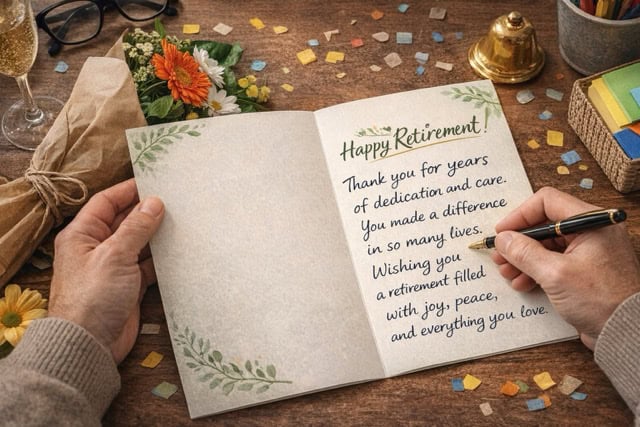 Happy Retirement!
Thank you for years
of dedication and care.
You made a difference
in so many lives.
Wishing you
a retirement filled
with joy, peace,
and everything you love.